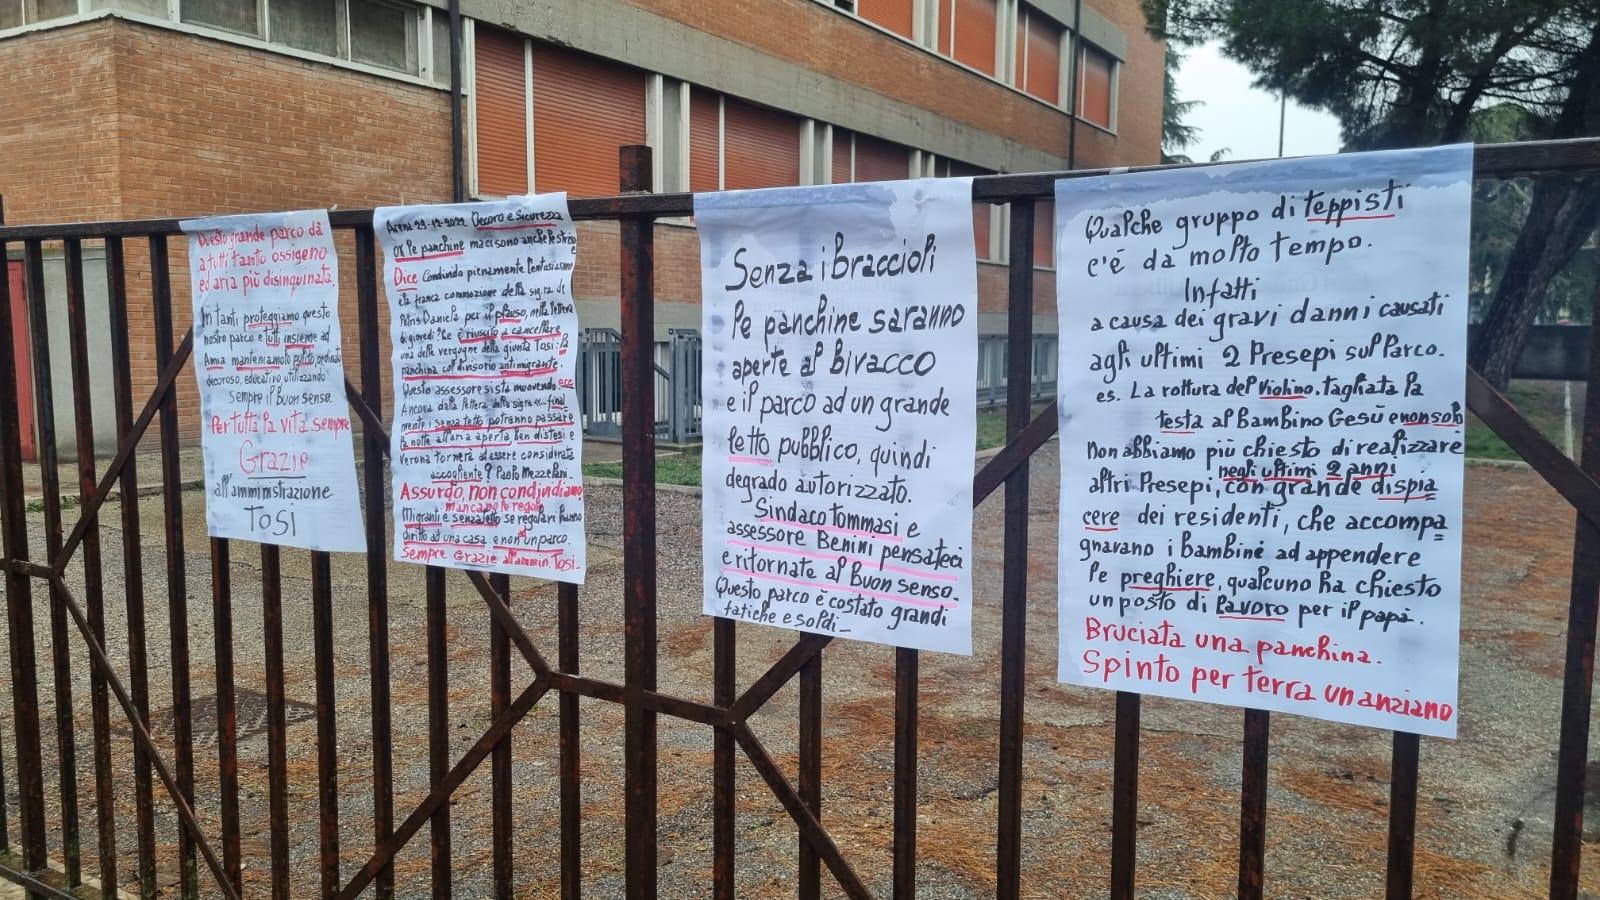 Questo grande parco dà
a tutti tanto ossigeno
ed aria più disinquinata.
In tanti proteggiamo questo
nostro parco e tutti insieme ad
Amia manteniamolo pulito, ordinato
decoroso, educativo utilizzando
sempre il Buon senso.
Per tutta la vita sempre
Grazie
all'amministrazione
TOSI
Arena 29-12-2022 Decoro e sicurezza
OK le panchine ma ci sono anche le strisc
e
Dice Condivido pienamente l'entusiasmo
e la franca commozione della sig.ra de
Petris Daniela per il plauso, nella lettera
di giovedì? Le è riuscito a cancellare
una delle vergogne della giunta Tosi: la
panchina col divisorio antimigrante.
Questo assessore si sta muovendo ecc
Ancora dalla lettera della sig.ra <<.. final
mente i senza tetto potranno passare
la notte all'aria aperta, ben distesi e
Verona tornerà ad essere considerata
accogliente? Paolo Mezzelani.
Assurdo, non condividiamo
mancano le regole
Migranti e senzatetto se regolari hanno
diritto ad una casa e non un parco.
Sempre Grazie all'ammin. Tosi_
Senza i braccioli
le panchine saranno
aperte al bivacco
e il parco ad un grande
letto pubblico, quindi
degrado autorizzato.
Sindaco Tommasi e
assessore Benini pensateci
e ritornate al Buon senso.
Questo parco è costato grandi
fatiche e soldi_
Qualche gruppo di teppisti
c'è da molto tempo.
Infatti
a causa dei gravi danni causati
agli ultimi 2 Presepi sul Parco.
es. La rottura del Violino. tagliata la
testa al Bambino Gesù e non solo
Non abbiamo più chiesto di realizzare
negli ultimi 2 anni
altri Presepi, con grande dispia
cere dei residenti, che accompa
gnavano i bambini ad appendere
le preghiere, qualcuno ha chiesto
un posto di lavoro per il papà.
Bruciata una panchina.
Spinto per terra un anziano